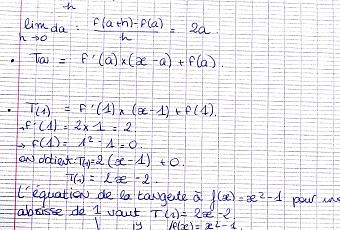 h
lim da : f(a+h)-f(a) / h = 2a
h→0
• Ta = f'(a)×(x-a)+f(a).
• T(1) = f'(1)×(x-1)+f(1).
→ f'(1) = 2×1 = 2
→ f(1) = 1²-1 = 0.
on obtient: T(1)=2(x-1)+0.
T(1) = 2x-2.
L'équation de la tangente à f(x)=x²-1 pour une
abscisse de 1 vaut T(1) = 2x-2.
f(x)=x²-1.